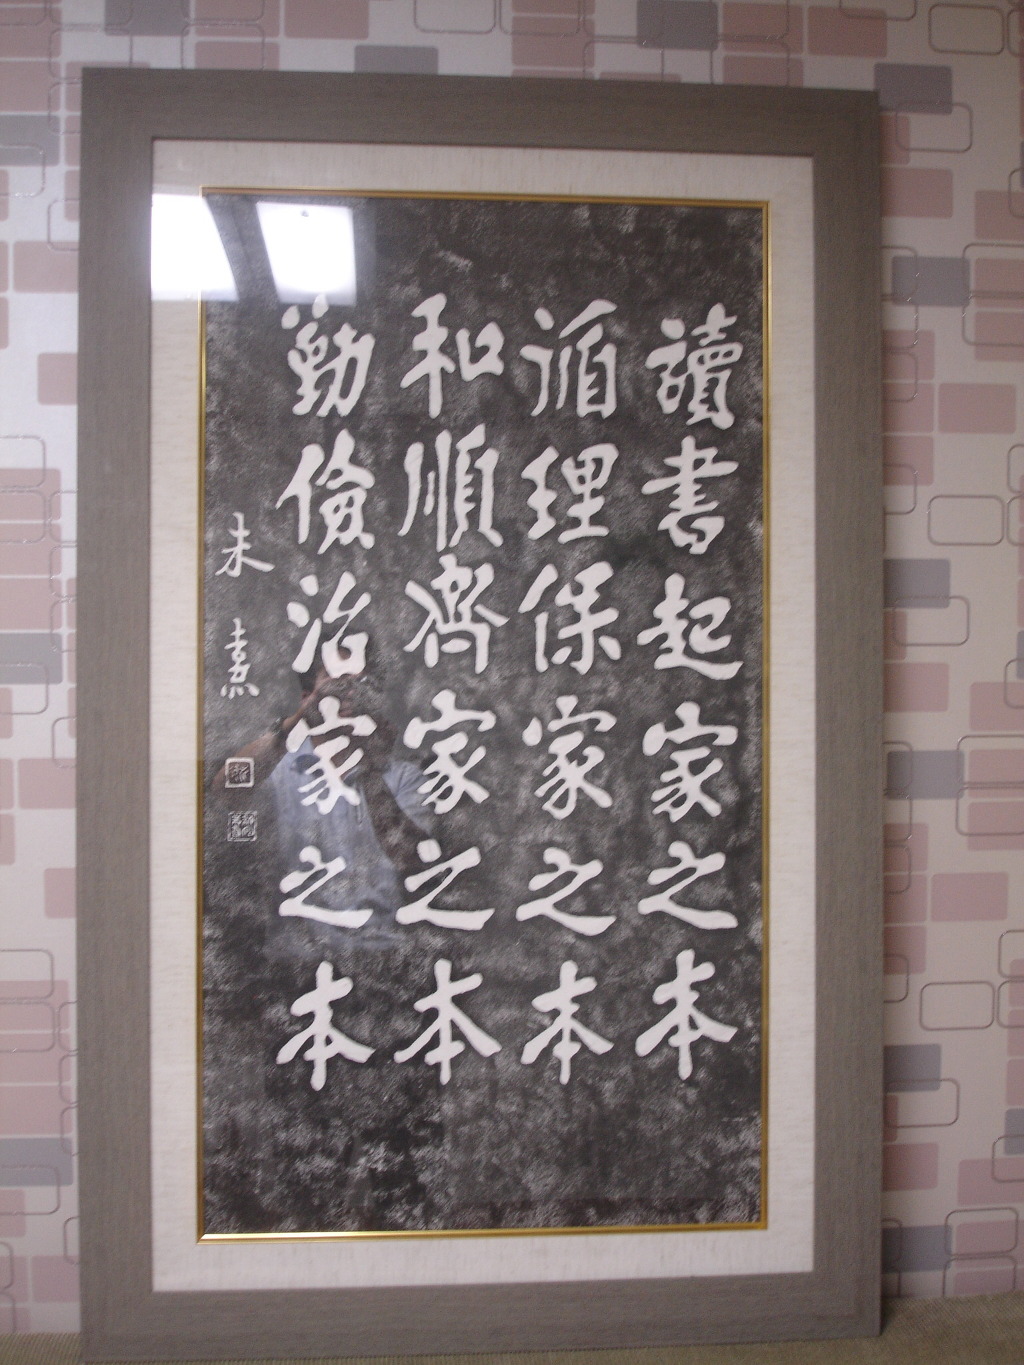 讀書起家之本
循理保家之本
和順齊家之本
勤儉治家之本
朱熹